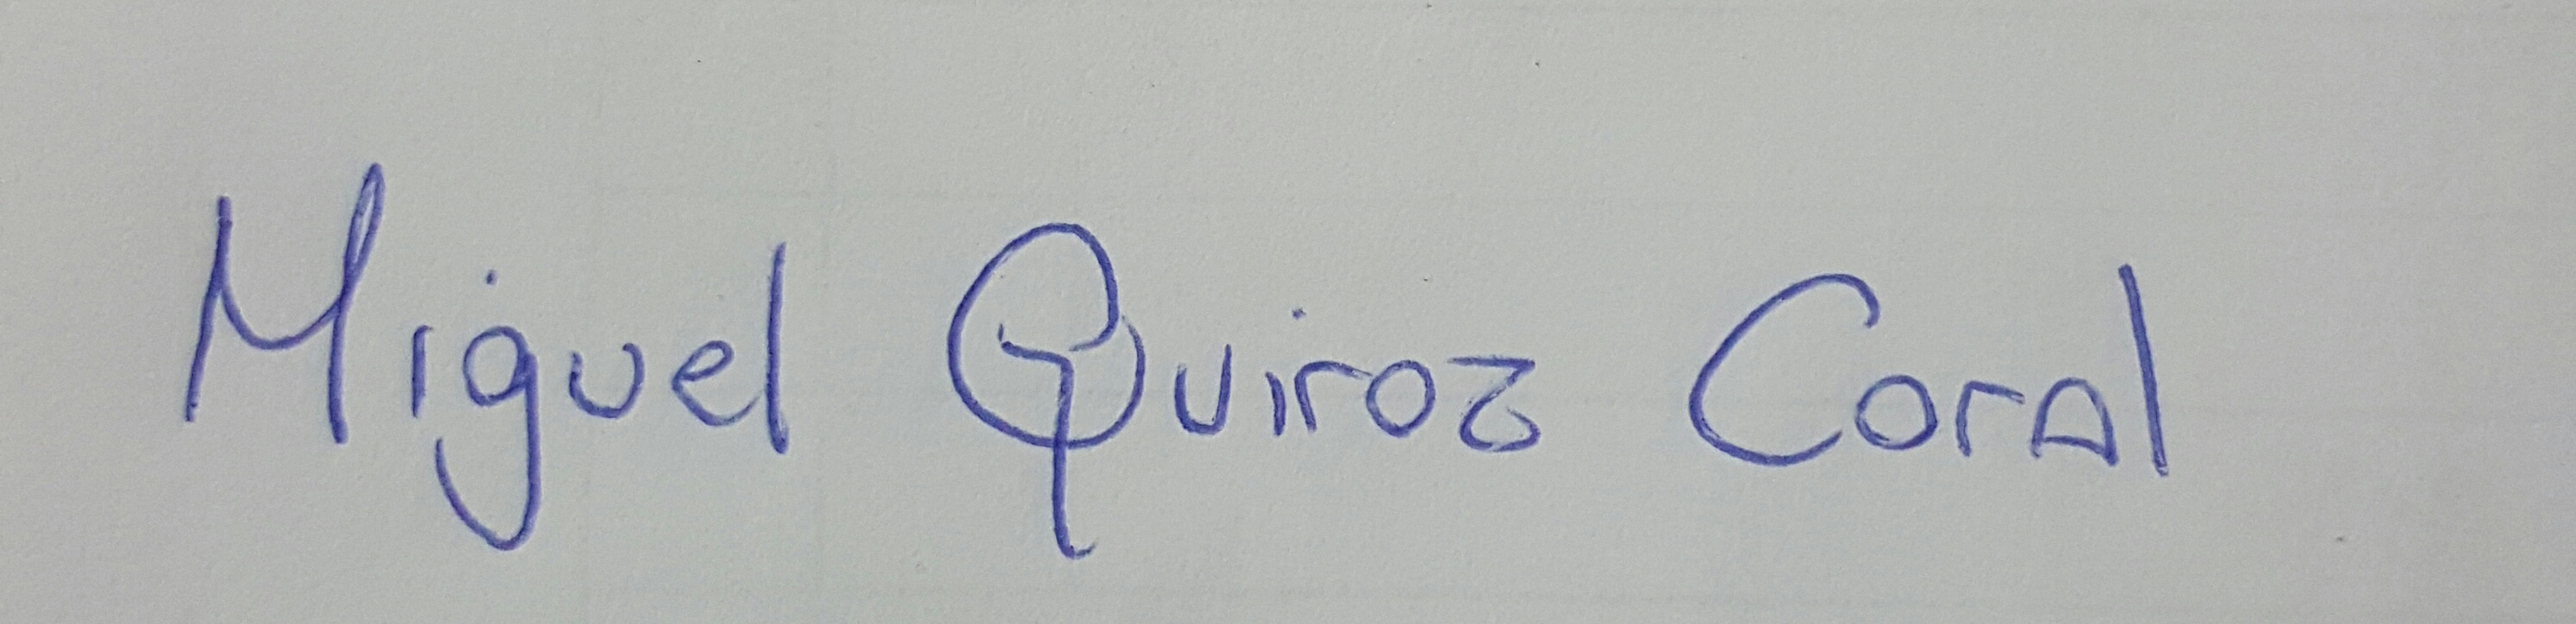 Miguel Quiroz Coral